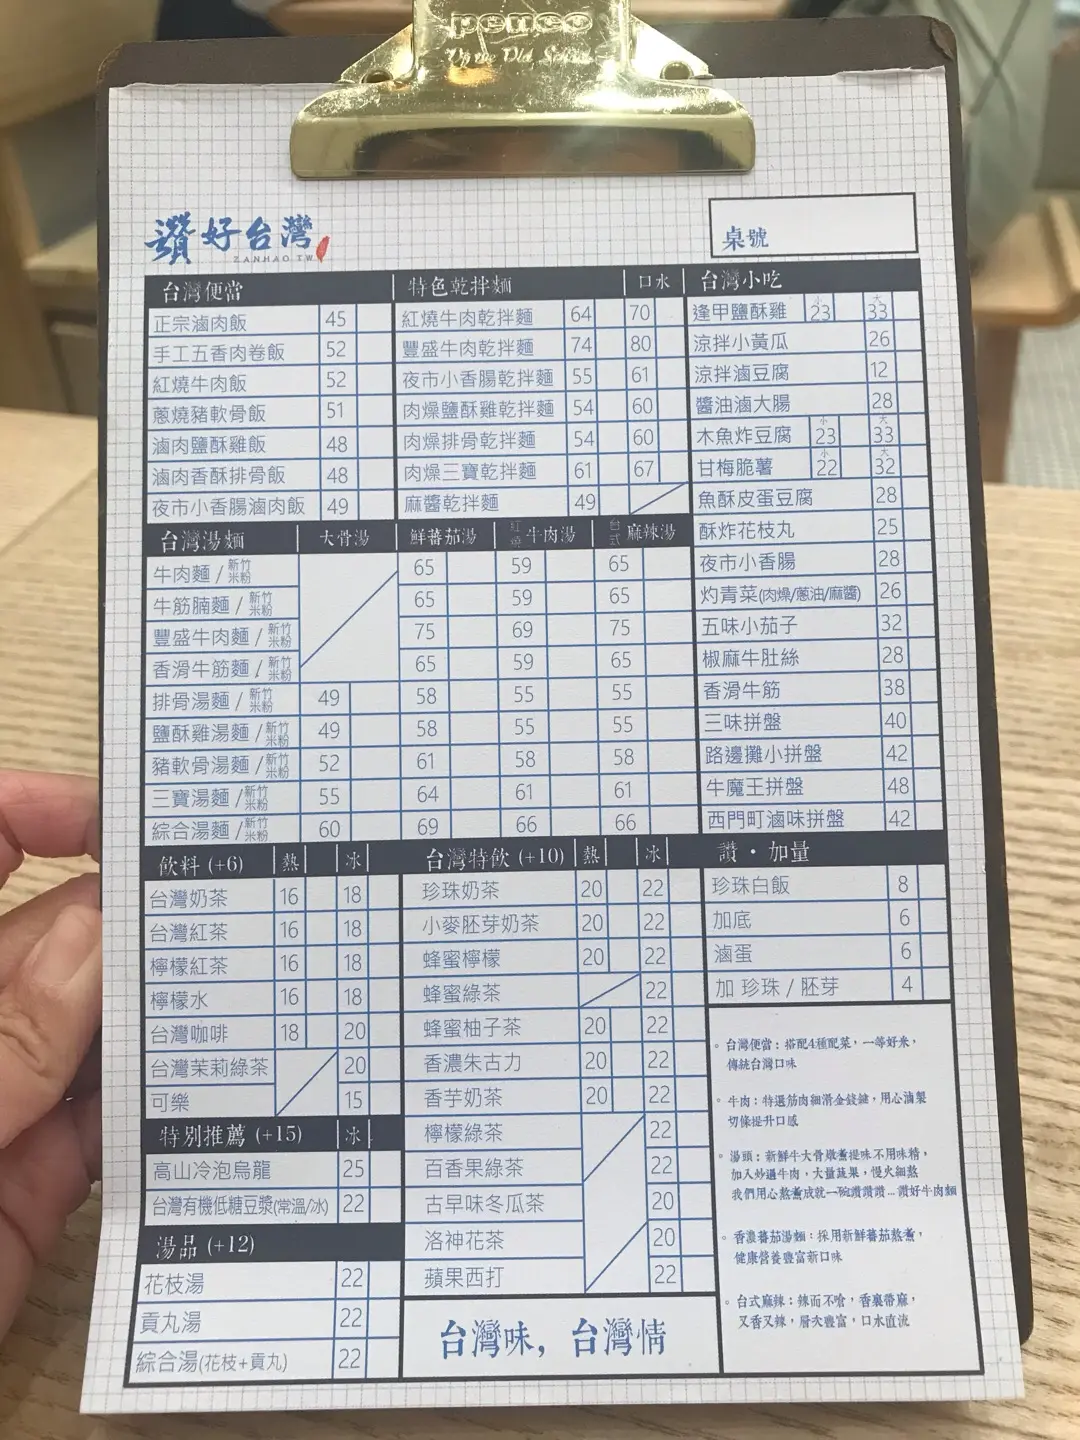 penco
讚好台灣
ZANHAO.TW
桌號
台灣便當
正宗滷肉飯 45
手工五香肉卷飯 52
紅燒牛肉飯 52
蔥燒豬軟骨飯 51
滷肉鹽酥雞飯 48
滷肉香酥排骨飯 48
夜市小香腸滷肉飯 49
特色乾拌麵 口水
紅燒牛肉乾拌麵 64 70
豐盛牛肉乾拌麵 74 80
夜市小香腸乾拌麵 55 61
肉燥鹽酥雞乾拌麵 54 60
肉燥排骨乾拌麵 54 60
肉燥三寶乾拌麵 61 67
麻醬乾拌麵 49
台灣小吃
逢甲鹽酥雞 小23 大33
涼拌小黃瓜 26
涼拌滷豆腐 12
醬油滷大腸 28
木魚炸豆腐 小23 大33
甘梅脆薯 小22 大32
魚酥皮蛋豆腐 28
酥炸花枝丸 25
夜市小香腸 28
灼青菜(肉燥/蔥油/麻醬) 26
五味小茄子 32
椒麻牛肚絲 28
香滑牛筋 38
三味拼盤 40
路邊攤小拼盤 42
牛魔王拼盤 48
西門町滷味拼盤 42
台灣湯麵 大骨湯 鮮蕃茄湯 紅燒牛肉湯 台式麻辣湯
牛肉麵/新竹米粉 65 59 65
牛筋腩麵/新竹米粉 65 59 65
豐盛牛肉麵/新竹米粉 75 69 75
香滑牛筋麵/新竹米粉 65 59 65
排骨湯麵/新竹米粉 49 58 55 55
鹽酥雞湯麵/新竹米粉 49 58 55 55
豬軟骨湯麵/新竹米粉 52 61 58 58
三寶湯麵/新竹米粉 55 64 61 61
綜合湯麵/新竹米粉 60 69 66 66
飲料 (+6) 熱 冰
台灣奶茶 16 18
台灣紅茶 16 18
檸檬紅茶 16 18
檸檬水 16 18
台灣咖啡 18 20
台灣茉莉綠茶 20
可樂 15
特別推薦 (+15) 冰
高山冷泡烏龍 25
台灣有機低糖豆漿(常溫/冰) 22
湯品 (+12)
花枝湯 22
貢丸湯 22
綜合湯(花枝+貢丸) 22
台灣特飲 (+10) 熱 冰
珍珠奶茶 20 22
小麥胚芽奶茶 20 22
蜂蜜檸檬 20 22
蜂蜜綠茶 22
蜂蜜柚子茶 20 22
香濃朱古力 20 22
香芋奶茶 20 22
檸檬綠茶 22
百香果綠茶 22
古早味冬瓜茶 20
洛神花茶 20
蘋果西打 22
台灣味，台灣情
讚・加量
珍珠白飯 8
加底 6
滷蛋 6
加 珍珠/胚芽 4
。台灣便當：搭配4種配菜，一等好米，
傳統台灣口味
。牛肉：特選筋肉細滑金錢𦟌，用心滷製
切條提升口感
。湯頭：新鮮牛大骨燉煮提味不用味精，
加入炒過牛肉，大量蔬果，慢火細熬
我們用心熬煮成就一碗讚讚讚...讚好牛肉麵
。香濃蕃茄湯麵：採用新鮮蕃茄熬煮，
健康營養豐富新口味
。台式麻辣：辣而不嗆，香裏帶麻，
又香又辣，層次豐富，口水直流